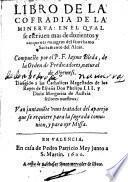 LIBRO DE LA
COFRADIA DE LA
MINERVA: EN EL QVAL
se escriuen mas de dozientos y
cincuenta milagros del santissimo
Sacramento del Altar.
Compuesto por el P. F. Iayme Bleda, de
la Orden de Predicadores, natural
de Algemesi.
Dirigido a las
Magestades de los
Reyes de España Don Phelipe III. y
Doña Margarita de Austria
señores nuestros.
Van juntamente treze tratados del aparejo
que se requiere para la sagrada comunion,
y para oyr Missa.
EN VALENCIA.
En casa de Pedro Patricio Mey junto a
S. Martin. 1600.
A costa de
mercader de libros.